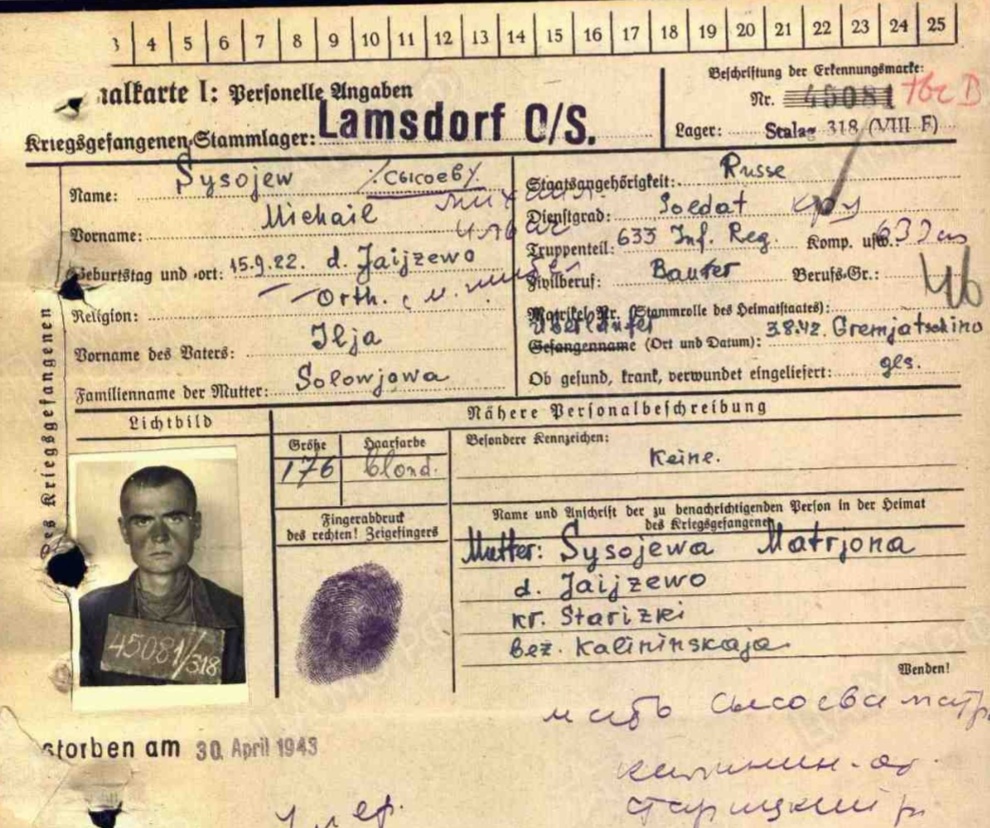 3 4 5 6 7 8 9 10 11 12 13 14 15 16 17 18 19 20 21 22 23 24 25
nalkarte I: Personelle Angaben
Kriegsgefangenen-Stammlager: Lamsdorf O/S.
Beschriftung der Erkennungsmarke:
Nr. 45081 tbc D
Lager: Stalag 318 (VIII F)
des Kriegsgefangenen
Name: Sysojew /Сысоев/
Vorname: Michail
Geburtstag und -ort: 15.9.22. d. Jaijzewo
Religion: Orth.
Vorname des Vaters: Ilja
Familienname der Mutter: Solowjowa
Staatsangehörigkeit: Russe
Dienstgrad: Soldat
Truppenteil: 633 Inf. Reg. Komp. usw.:
Zivilberuf: Bauer Berufs-Gr.:
Matrikel Nr. (Stammrolle des Heimatstaates):
Überläufer
Gefangenname (Ort und Datum): 3.8.42. Gremjatschino
Ob gesund, krank, verwundet eingeliefert: ges.
Lichtbild
Nähere Personalbeschreibung
Größe Haarfarbe
176 blond.
Besondere Kennzeichen:
Keine.
Fingerabdruck
des rechten! Zeigefingers
45081/318
Name und Anschrift der zu benachrichtigenden Person in der Heimat
des Kriegsgefangenen
Mutter: Sysojewa Matrjona
d. Jaijzewo
kr. Starizki
bez. Kalininskaja
Wenden!
storben am 30. April 1943
мать Сысоева матр
калинин. об.
старицкий р.